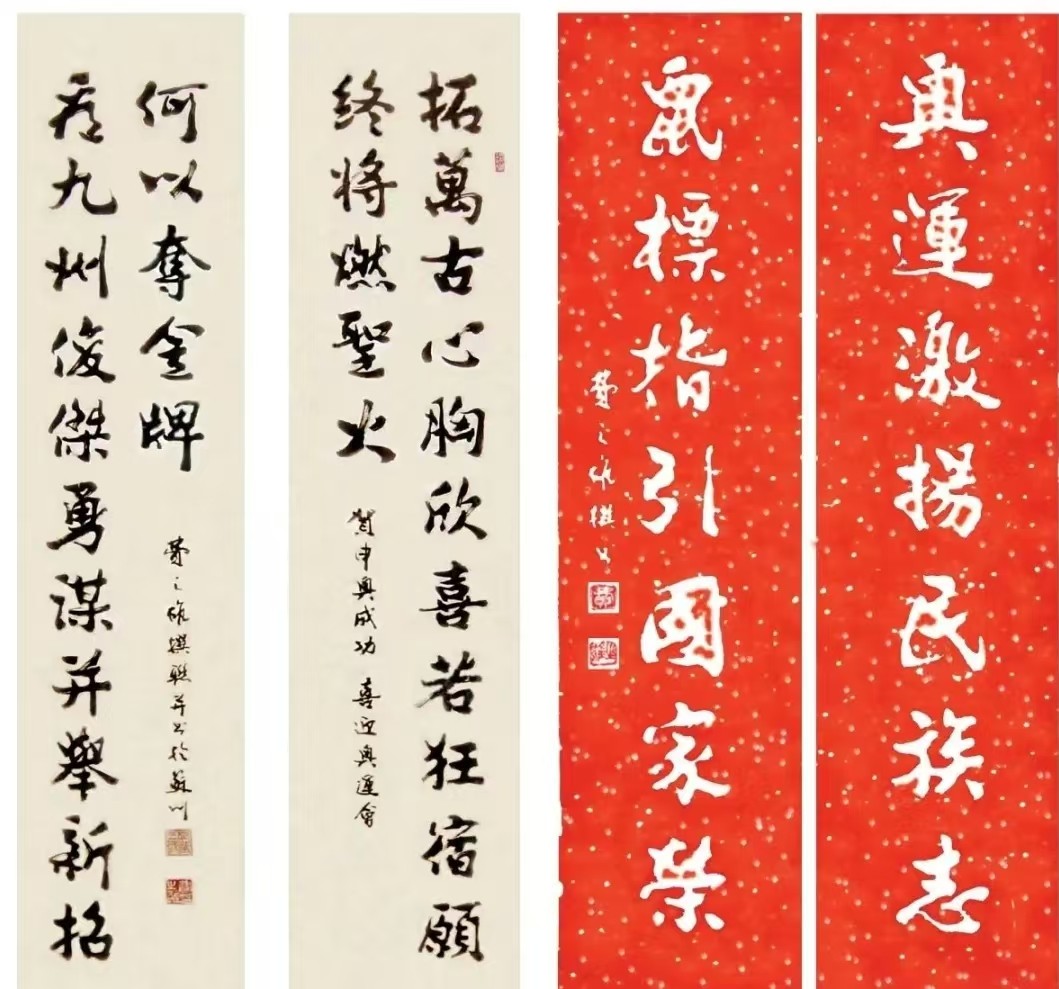 奧運激揚民族志
鼠標指引國家榮
費之雄撰書
拓萬古心胸欣喜若狂宿願
終將燃聖火
賀申奧成功 喜迎奧運會
看九州俊傑勇謀并舉新招
何以奪金牌
費之雄撰聯并書於蘇州